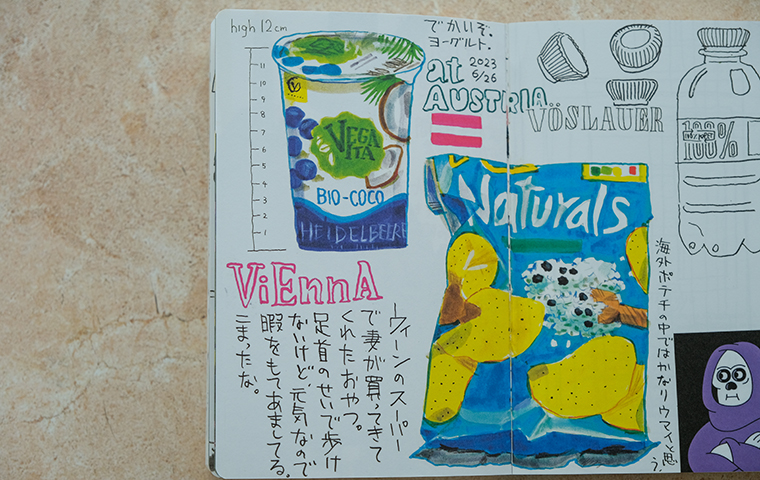 high 12cm
でかいぞ。
ヨーグルト.
at 2023
6/26
AUSTRIA
11
10
9
8
7
6
5
4
3
2
1
VEGA
VITA
BIO-COCO
HEIDELBEERE
ViEnnA
ウィーンのスーパー
で妻が買ってきて
くれたおやつ。
足首のせいで歩け
ないけど、元気なので
暇をもてあましてる。
こまったな。
Naturals
海外ポテチの中ではかなりウマイと思う。
VÖSLAUER
100%